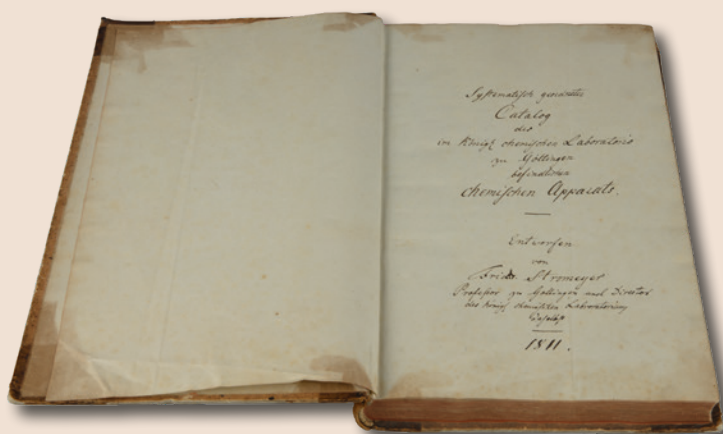 Systematisch geordneter
Catalog
des
im Königl. chemischen Laboratorio
zu Göttingen
befindlichen
chemischen Apparats.
Entworfen
von
Fried. Stromeyer
Professor zu Göttingen und Director
des Königl. chemischen Laboratoriums
daselbst
1811.